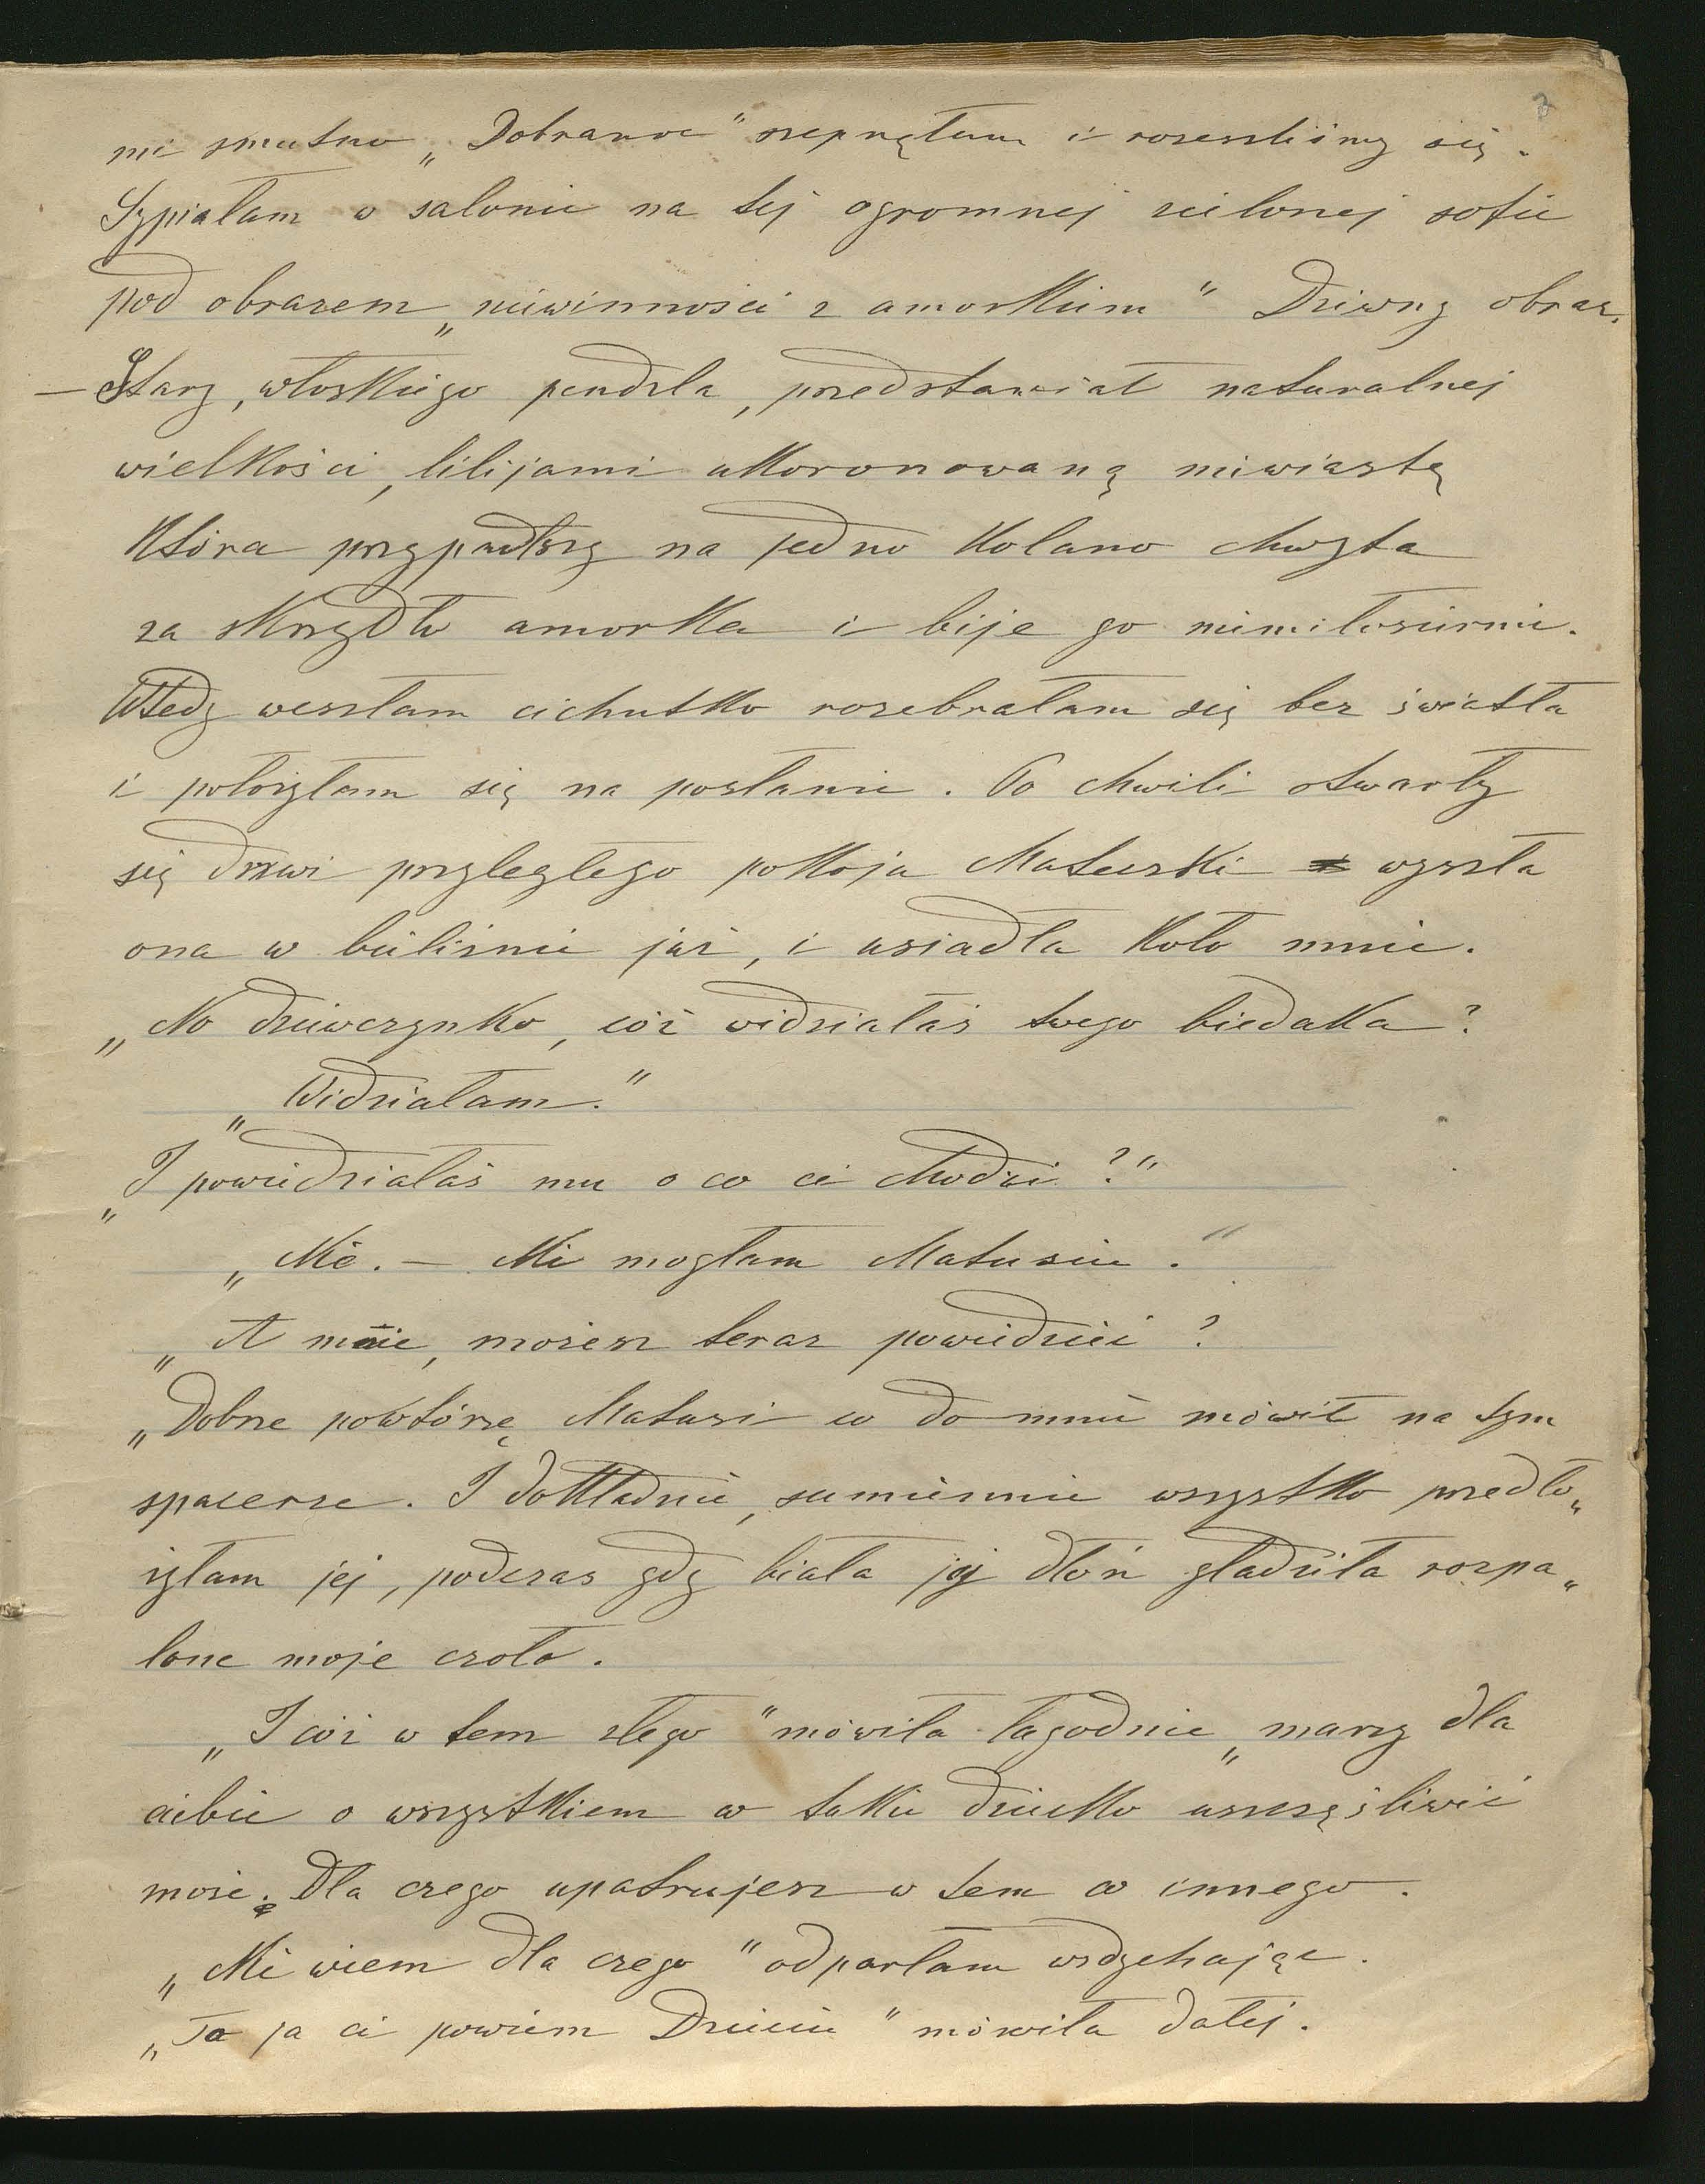 mi smutno „Dobranoc" szepnęłam i rozeszliśmy się.
Sypiałam w salonie na tej ogromnej zielonej sofie
pod obrazem „niewinności z amorkiem" Dziwny obraz.
– Stary, włoskiego pendzla, przedstawiał naturalnej
wielkości, lilijami ukoronowaną niewiastę
która przypadłszy na jedno kolano chwyta
za skrzydło amorka i bije go niemiłosiernie.
Wtedy weszłam cichutko rozebrałam się bez światła
i położyłam się na posłanie. Po chwili otwarły
się drzwi przyległego pokoju Matuski wyszła
ona w bieliźnie już, i usiadła koło mnie.
„No dziewczynko, cóż widziałaś twego biedaka?
„Widziałam."
„I powiedziałaś mu o co ci chodzi?"
„Nie. – Nie mogłam Matusiu."
„A mnie, możesz teraz powiedzieć?
„Dobrze powtórzę Matusi co do mnie mówił na tym
spacerze. I dokładnie, sumiennie wszystko przedło„
żyłam jej, podczas gdy biała jej dłoń gładziła rozpa„
lone moje czoło.
„I cóż w tem złego" mówiła łagodnie „marzy dla
ciebie o wszystkiem co takie dziecko uszczęśliwić
może. Dla czego upatrujesz w tem co innego.
„Nie wiem dla czego" odparłam wzdychając.
„To ja ci powiem Dziecię" mówiła dalej.